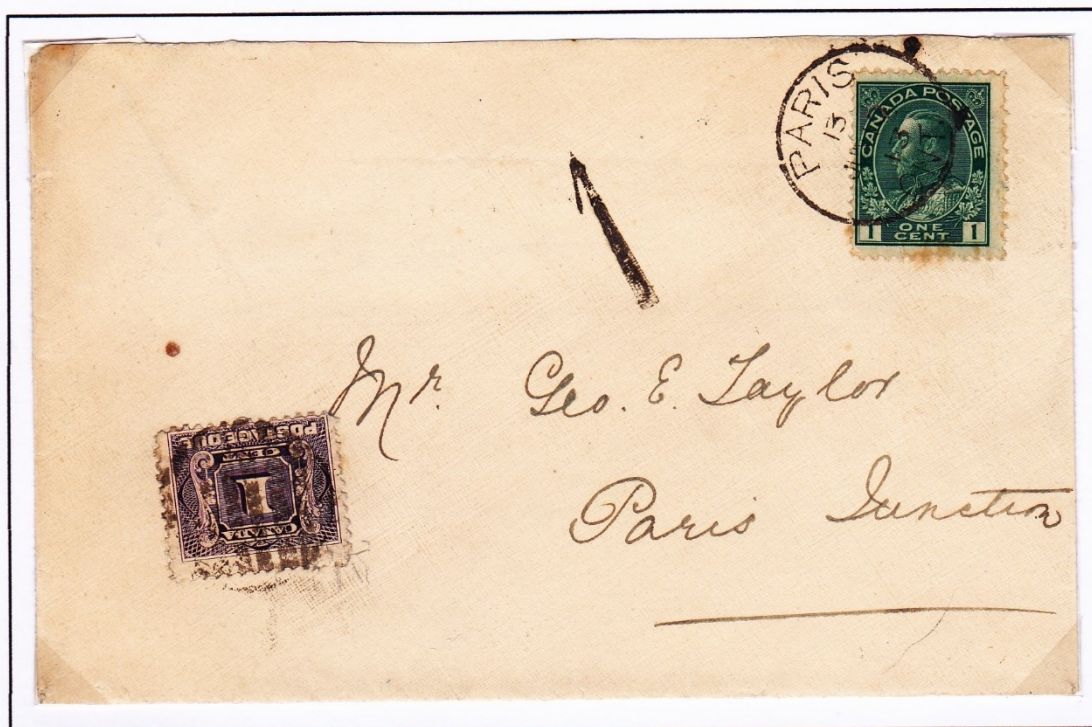 PARIS
13
13
CANADA POSTAGE
1 ONE CENT 1
Mr. Geo. E. Taylor
Paris Junction
POSTAGE DUE
CENT
1
CANADA